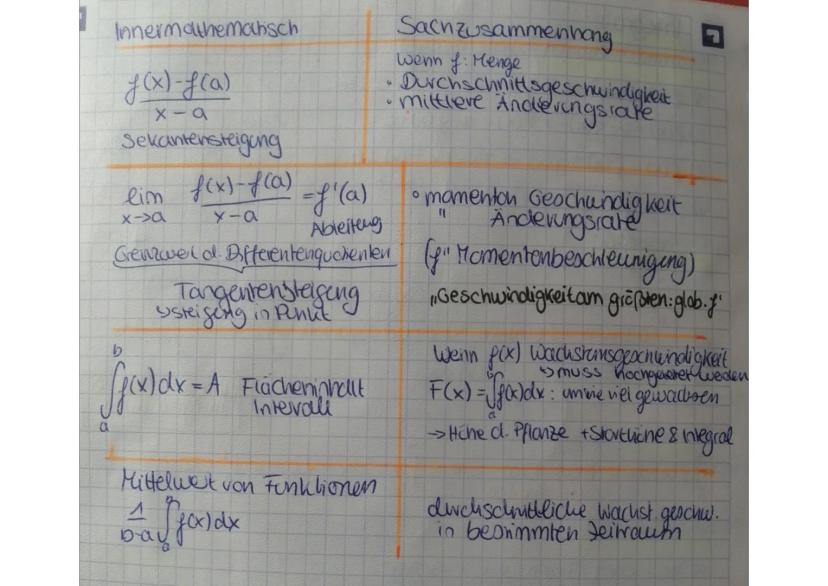 Innermathematisch
f(x)-f(a)
x-a
Sekantensteigung
Sachzusammenhang
Wenn f: Menge
• Durchschnittsgeschwindigkeit
• mittlere Änderungsrate
lim f(x)-f(a) = f'(a)
x→a x-a
Ableitung
Grenzwert d. Differentenquotienten
Tangentensteigung
↳ steigung in Punkt
• momentan Geschwindigkeit
" Änderungsrate
(f" Momentenbeschleunigung)
"Geschwindigkeit am größten: glob. f'
b
∫f(x)dx = A Flächeninhalt
a
Intervall
Wenn f(x) Wachstumsgeschwindigkeit
↳ muss werden
F(x) = ∫f(x)dx : um wie viel gewachsen
a
→ Höhe d. Pflanze + Starthöhe & Integral
Mittelwert von Funktionen
1
b-a ∫f(x)dx
a
durchschnittliche Wachst. geschw.
in bestimmten Zeitraum